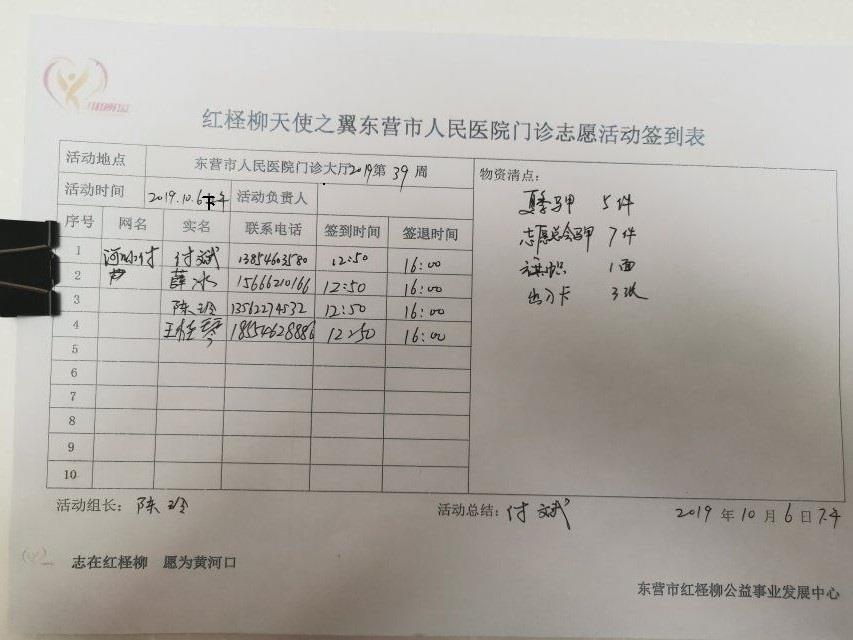 红柽柳天使之翼东营市人民医院门诊志愿活动签到表
活动地点 东营市人民医院门诊大厅2019第39周
物资清点：
活动时间 2019.10.6下午 活动负责人
夏季马甲 5件
序号 网名 实名 联系电话 签到时间 签退时间
志愿总会马甲 7件
1 付斌 13854603580 12:50 16:00
旗帜 1面
2 薛冰 15666210166 12:50 16:00
出入卡 3张
3 陈玲 13562274532 12:50 16:00
4 王桂琴 18554628886 12:50 16:00
5
6
7
8
9
10
活动组长：陈玲 活动总结：付斌 2019年10月6日下午
志在红柽柳 愿为黄河口
东营市红柽柳公益事业发展中心